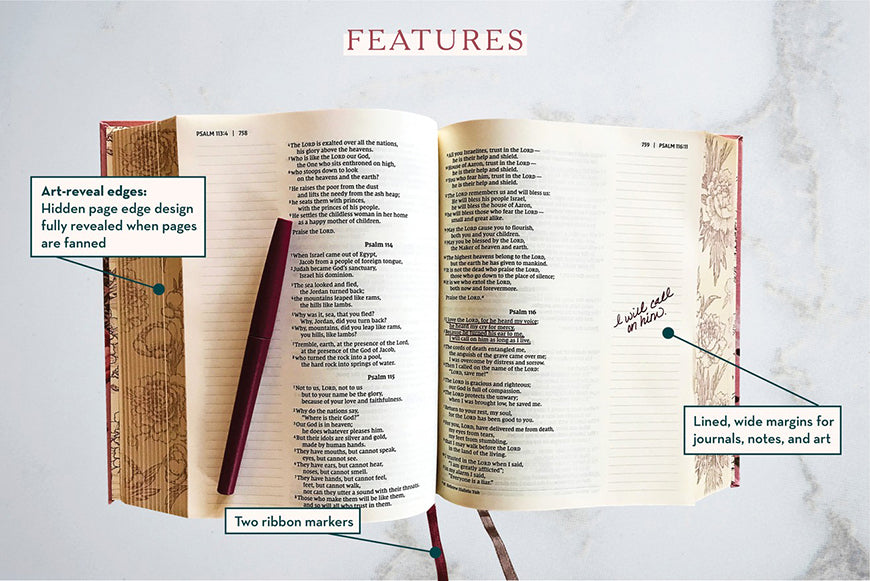 FEATURES
Art-reveal edges:
Hidden page edge design
fully revealed when pages
are fanned
PSALM 113:4 | 758
4The LORD is exalted over all the nations,
his glory above the heavens.
5Who is like the LORD our God,
the One who sits enthroned on high,
6who stoops down to look
on the heavens and the earth?
7He raises the poor from the dust
and lifts the needy from the ash heap;
8he seats them with princes,
with the princes of his people.
9He settles the childless woman in her home
as a happy mother of children.
Praise the LORD.
Psalm 114
1When Israel came out of Egypt,
Jacob from a people of foreign tongue,
2Judah became God's sanctuary,
Israel his dominion.
3The sea looked and fled,
the Jordan turned back;
4the mountains leaped like rams,
the hills like lambs.
5Why was it, sea, that you fled?
Why, Jordan, did you turn back?
6Why, mountains, did you leap like rams,
you hills, like lambs?
7Tremble, earth, at the presence of the Lord,
at the presence of the God of Jacob,
8who turned the rock into a pool,
the hard rock into springs of water.
Psalm 115
1Not to us, LORD, not to us
but to your name be the glory,
because of your love and faithfulness.
2Why do the nations say,
"Where is their God?"
3Our God is in heaven;
he does whatever pleases him.
4But their idols are silver and gold,
made by human hands.
5They have mouths, but cannot speak,
eyes, but cannot see.
6They have ears, but cannot hear,
noses, but cannot smell.
7They have hands, but cannot feel,
feet, but cannot walk,
nor can they utter a sound with their throats.
8Those who make them will be like them,
and so will all who trust in them.
759 | PSALM 116:11
9All you Israelites, trust in the LORD—
he is their help and shield.
10House of Aaron, trust in the LORD—
he is their help and shield.
11You who fear him, trust in the LORD—
he is their help and shield.
12The LORD remembers us and will bless us:
He will bless his people Israel,
he will bless the house of Aaron,
13he will bless those who fear the LORD—
small and great alike.
14May the LORD cause you to flourish,
both you and your children.
15May you be blessed by the LORD,
the Maker of heaven and earth.
16The highest heavens belong to the LORD,
but the earth he has given to mankind.
17It is not the dead who praise the LORD,
those who go down to the place of silence;
18it is we who extol the LORD,
both now and forevermore.
Praise the LORD.
Psalm 116
1I love the LORD, for he heard my voice;
he heard my cry for mercy.
2Because he turned his ear to me,
I will call on him as long as I live.
3The cords of death entangled me,
the anguish of the grave came over me;
I was overcome by distress and sorrow.
4Then I called on the name of the LORD:
"LORD, save me!"
5The LORD is gracious and righteous;
our God is full of compassion.
6The LORD protects the unwary;
when I was brought low, he saved me.
7Return to your rest, my soul,
for the LORD has been good to you.
8For you, LORD, have delivered me from death,
my eyes from tears,
my feet from stumbling,
9that I may walk before the LORD
in the land of the living.
10I trusted in the LORD when I said,
"I am greatly afflicted";
11in my alarm I said,
"Everyone is a liar."
I will call
on him.
Lined, wide margins for
journals, notes, and art
Two ribbon markers